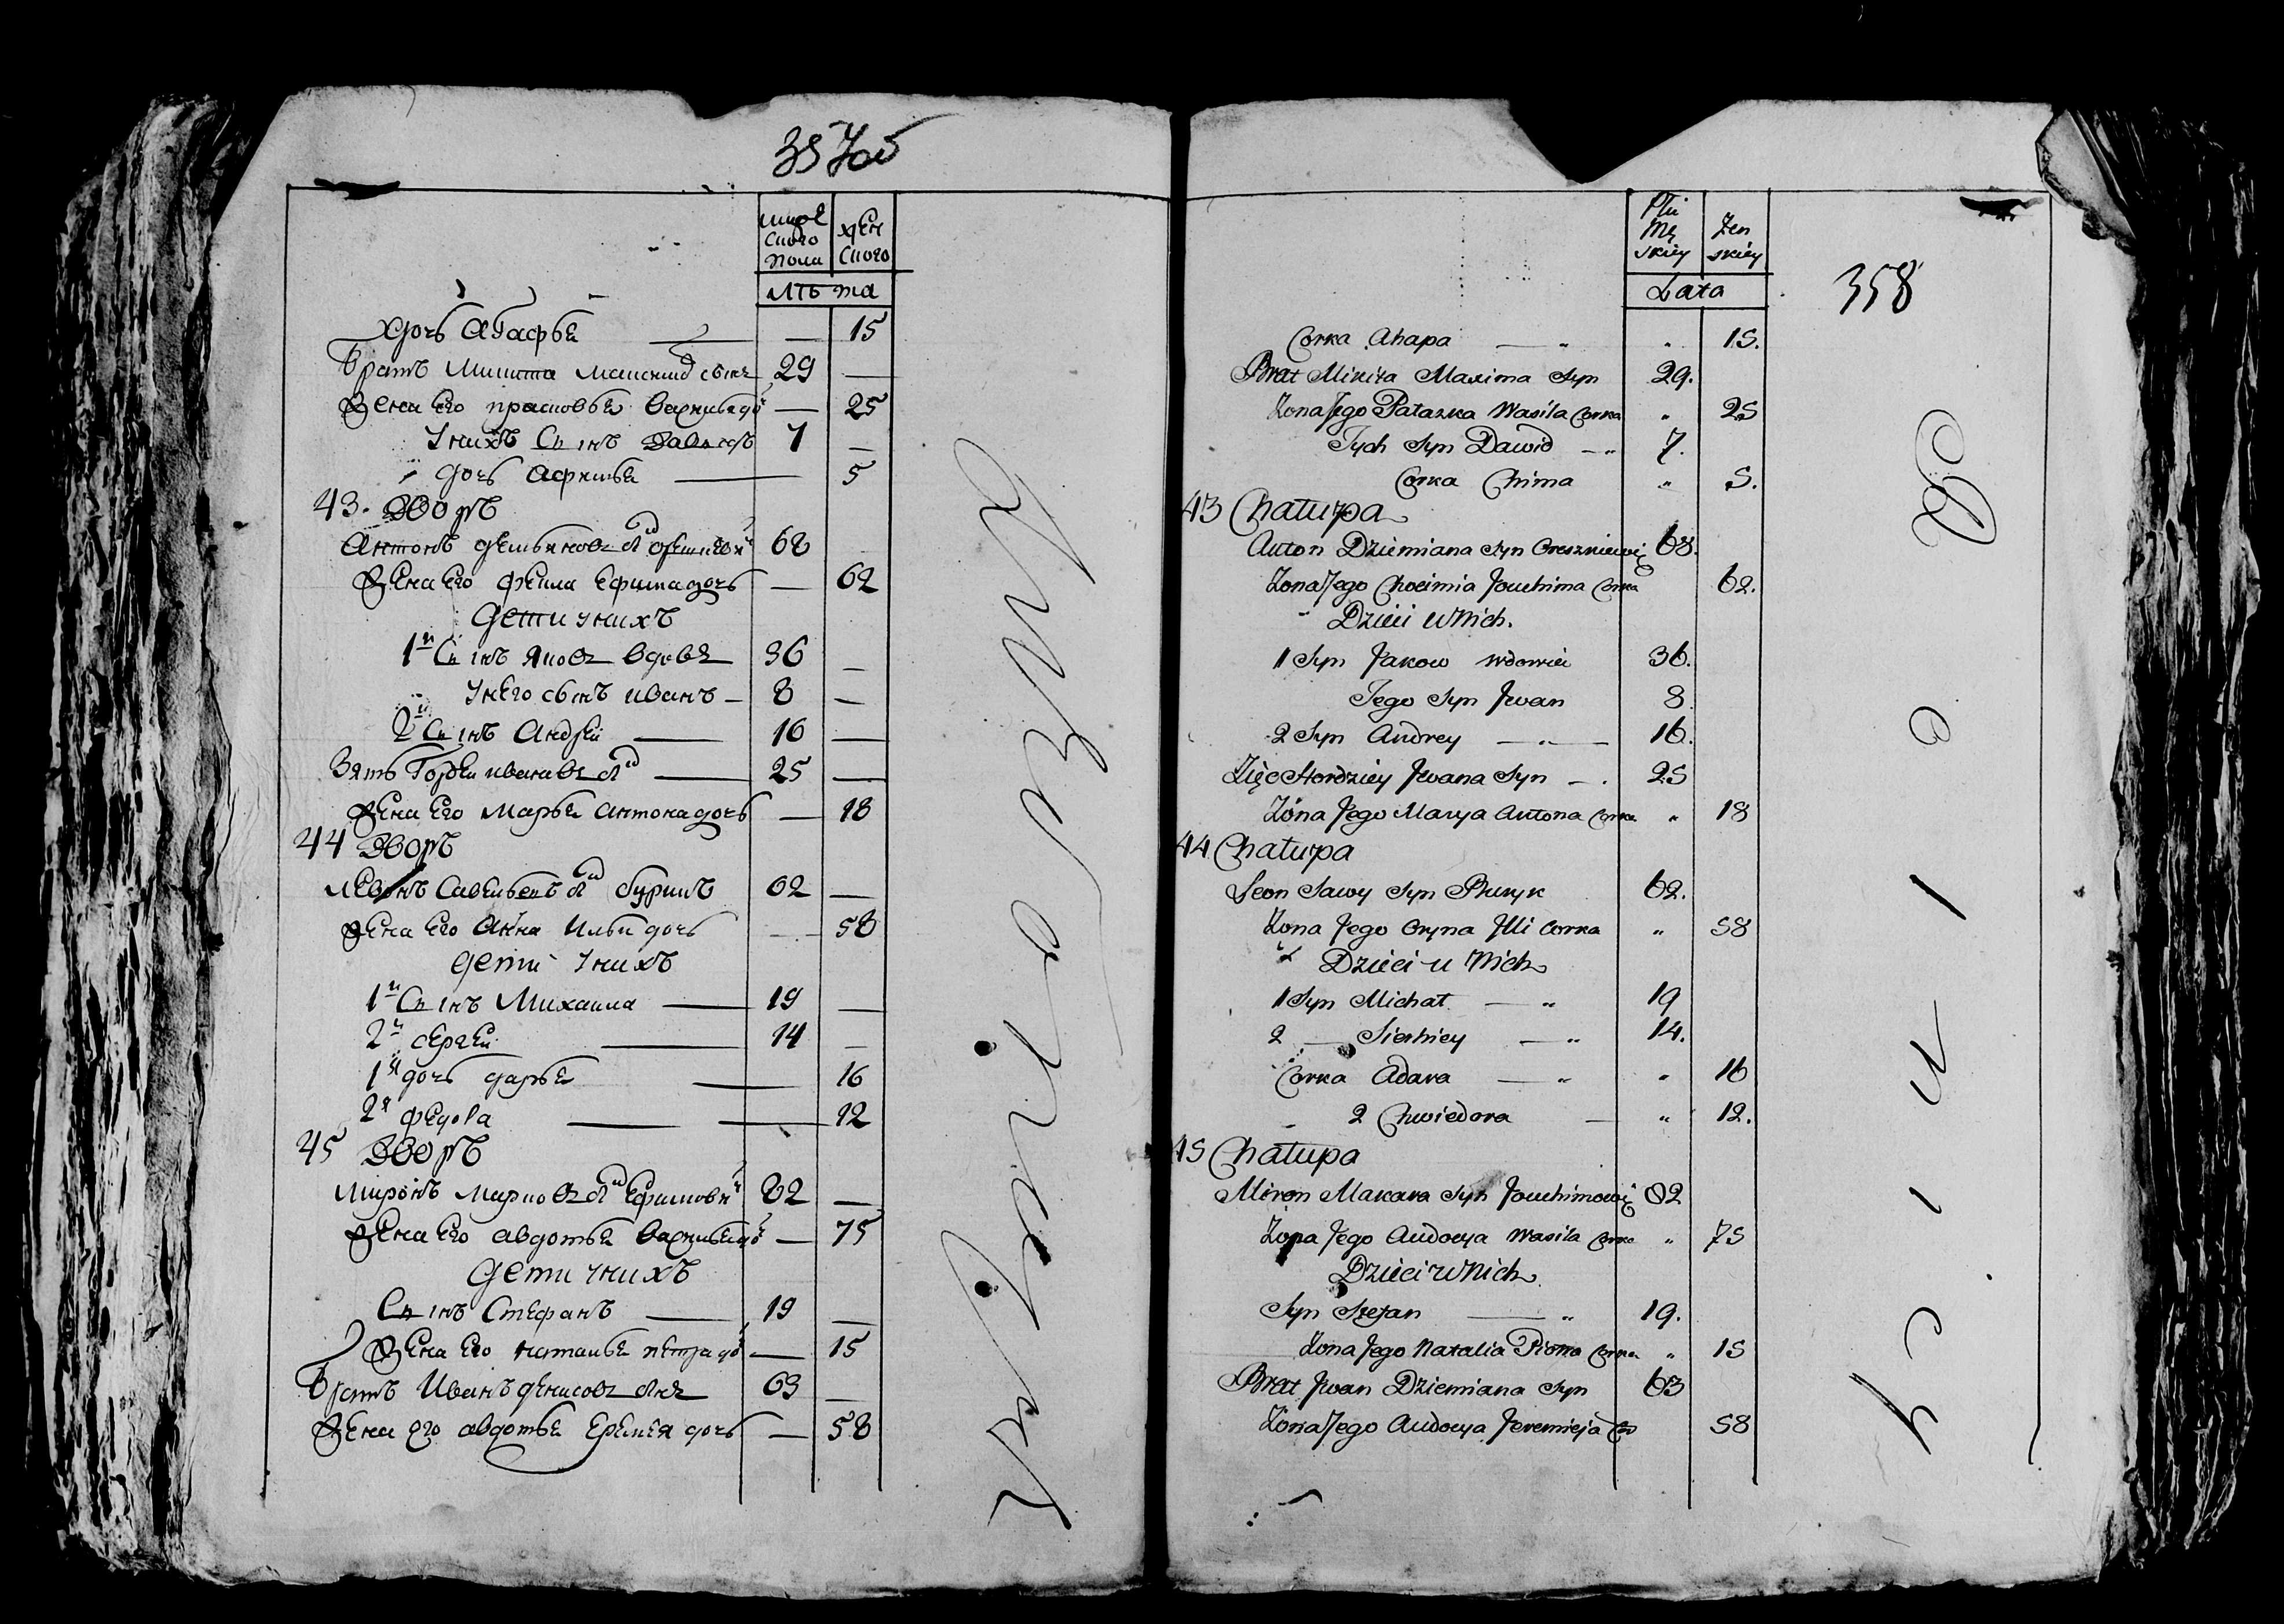 357об
мужескаго пола
женскаго
лѣта
дочь Агафья — 15
Братъ Микита Максимовъ сынъ 29 —
Жена его Прасковья Василья до — 25
У нихъ Сынъ Давыдъ 7 —
дочь Афимья 5
43. Дворъ
Антонъ Демьяновъ сынъ 68
Жена его Фекла Ефима дочь — 62
Дети у нихъ
1й Сынъ Яковъ вдовъ 36 —
У него сынъ Иванъ — 8 —
2й Сынъ Андрей 16 —
Зять Гордей Ивановъ сынъ 25 —
Жена его Марья Антона дочь — 18
44 Дворъ
Левонъ Савельевъ сынъ Бурикъ 62 —
Жена его Анна Ильи дочь — 58
дети у нихъ
1й Сынъ Михаила 19 —
2й Сергей 14 —
1я дочь Дарья 16
2я Федора 12
45 Дворъ
Миронъ Марковъ сынъ Ефимови 82 —
Жена его Авдотья Василья до — 75
Дети у нихъ
Сынъ Стефанъ 19 —
Жена его Наталья Петра до — 15
Братъ Иванъ Денисовъ сынъ 63 —
Жена его Авдотья Еремея дочь — 58
Płci Męskiey
Żenskiey
Lata
358
Corka Ahapa — „ „ 15.
Brat Mikita Maxima Syn 29.
Zona Jego Pataska Wasila Corka „ 25
Tych Syn Dawid — „ 7.
Corka Chima „ 5.
43 Chałupa
Anton Dziemiana Syn Oreszkiewicz 68.
Zona Jego Chocimia Jouchima Corka 62.
Dzieci u Nich.
1 Syn Jakow wdowiec 36.
Jego Syn Jwan 8
2 Syn Andrey — „ — 16.
Zięc Hordziey Jwana Syn — . 25
Zona Jego Marya Antona Corka „ 18
44 Chałupa
Leon Sawy Syn Buryk 62.
Zona Jego Oryna Jlli Corka „ 58
Dzieci u Nich
1 Syn Michał — „ 19
2 — Sierhiey — „ 14.
Corka Adara — „ „ 16
2 Chwiedora — „ 12.
45 Chałupa
Miron Makara Syn Jouchimowicz 82
Zona Jego Audocya Wasila Corka „ 75
Dzieci u Nich
Syn Stefan — „ 19.
Zona Jego Natalia Piotra Corka „ 15
Brat Jwan Dziemiana Syn 63
Zona Jego Audocya Jeremieja Co 58